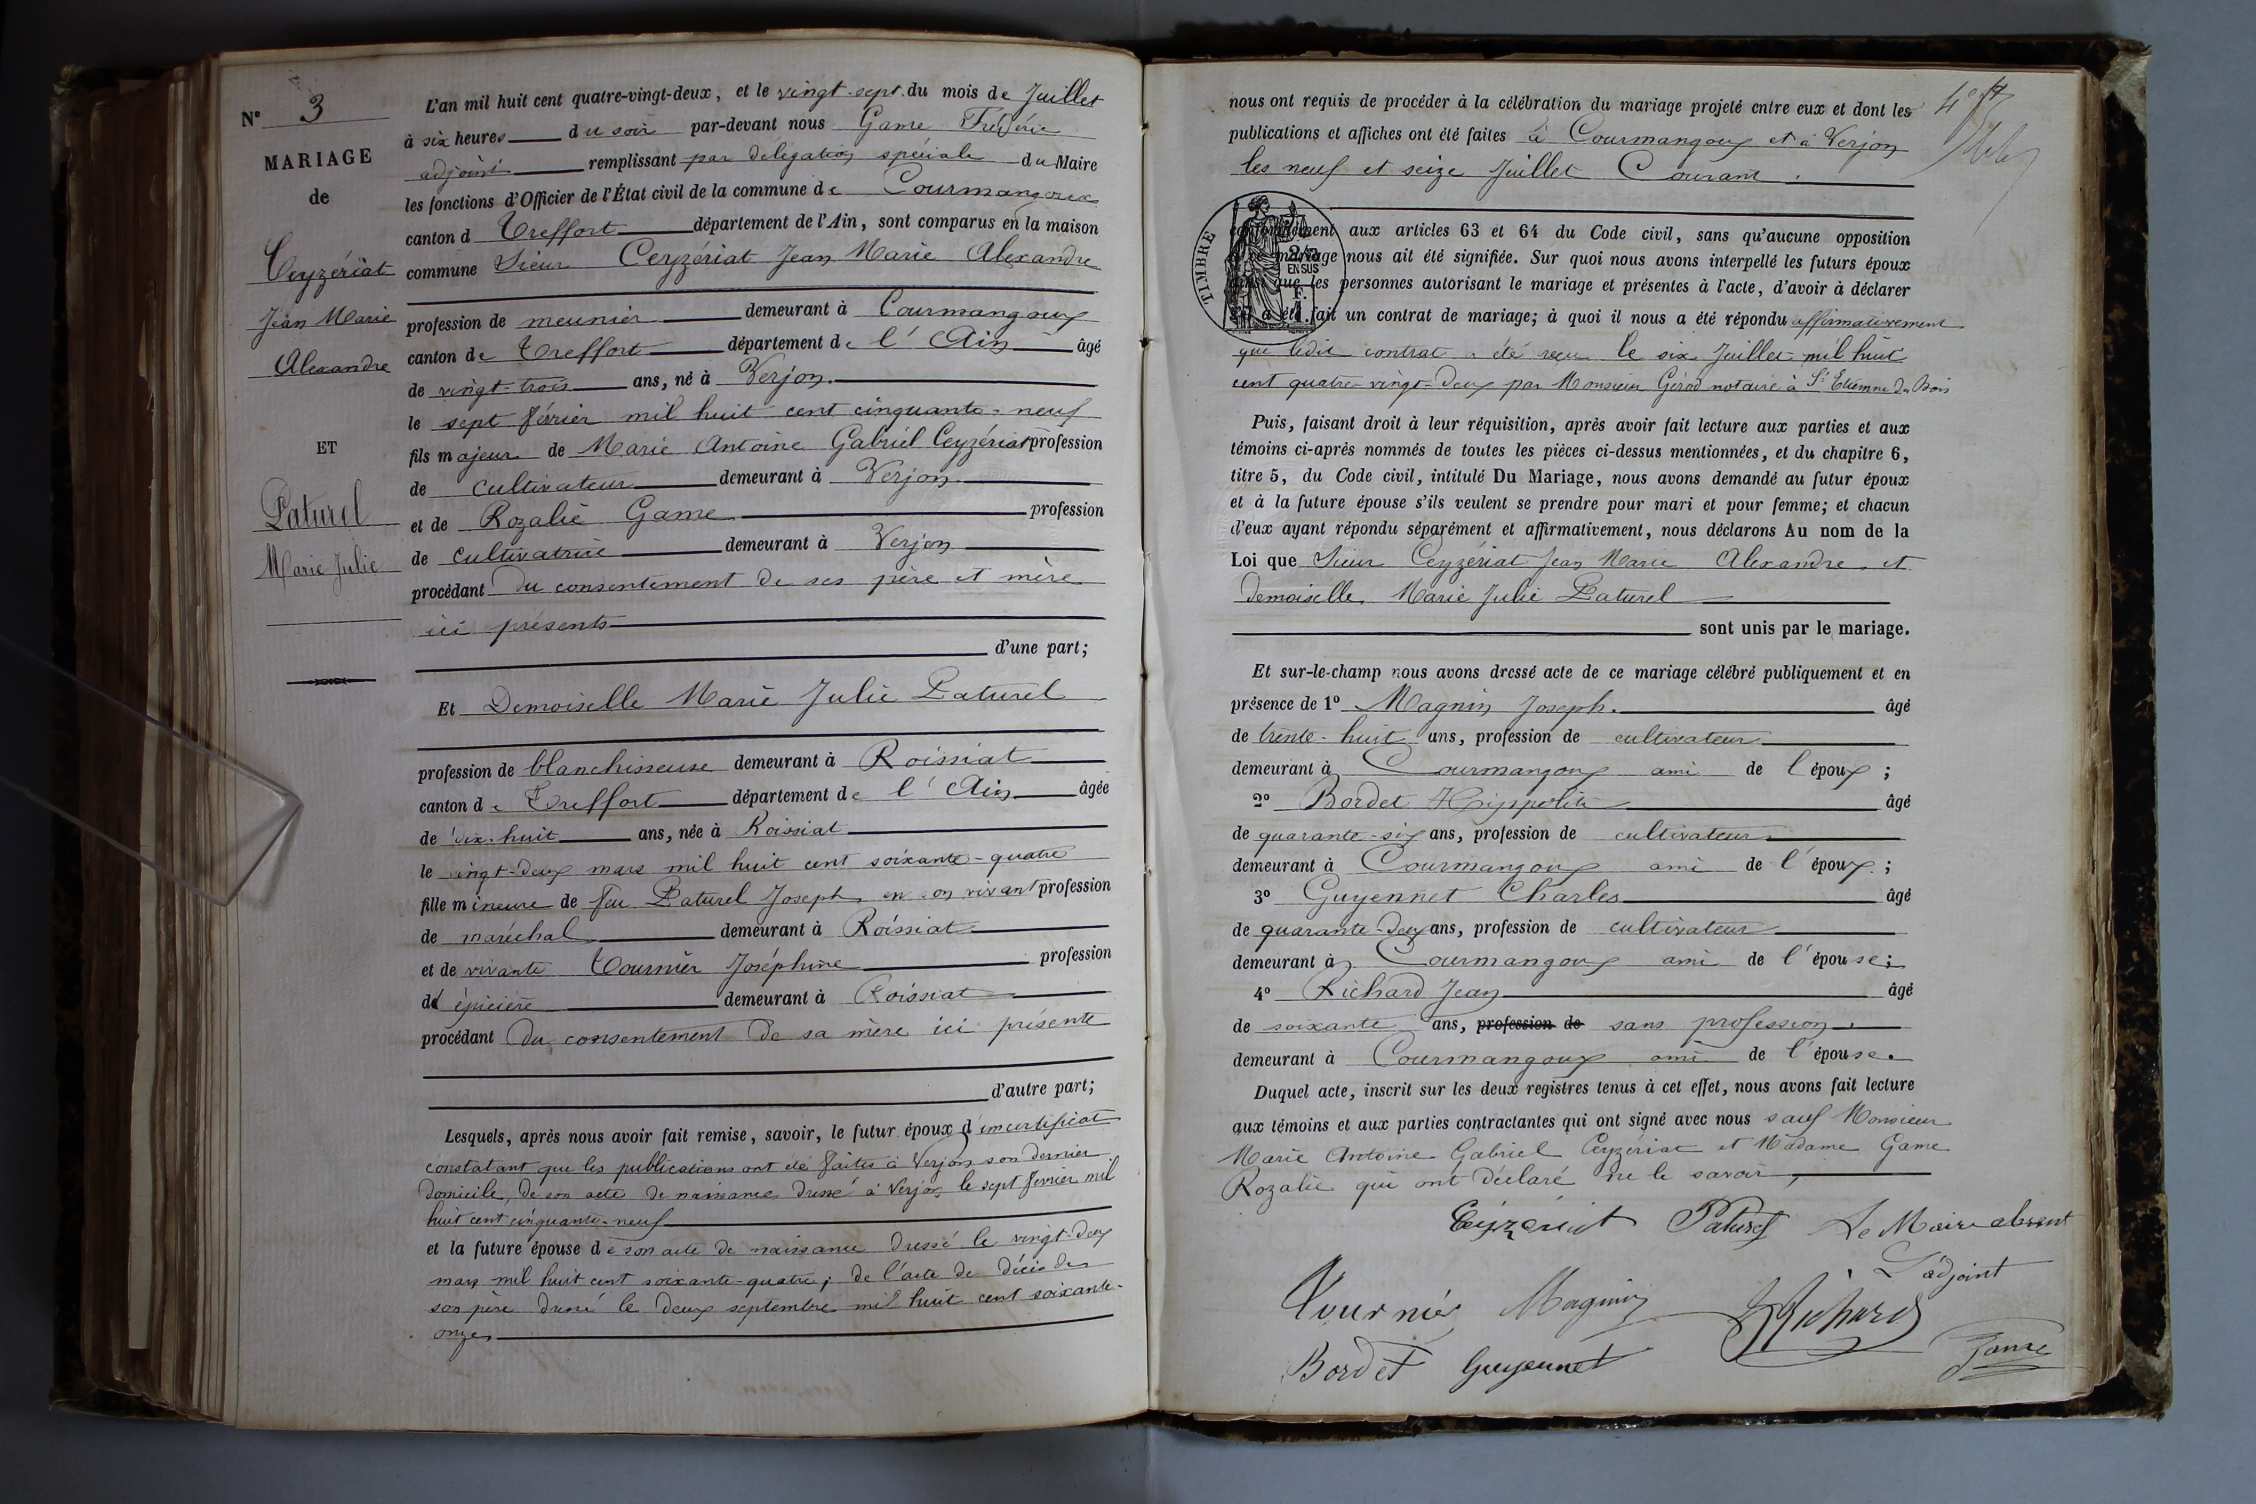 N° 3
MARIAGE
de
Ceyzériat
Jean Marie
Alexandre
ET
Paturel
Marie Julie
L'an mil huit cent quatre-vingt-deux, et le vingt-sept du mois de Juillet
à six heures du soir par-devant nous Game Frédéric
adjoint remplissant par délégation spéciale du Maire
les fonctions d'Officier de l'État civil de la commune de Courmangoux
canton d Treffort département de l'Ain, sont comparus en la maison
commune Sieur Ceyzériat Jean Marie Alexandre
profession de meunier demeurant à Courmangoux
canton de Treffort département de l'Ain âgé
de vingt-trois ans, né à Verjon
le sept février mil huit cent cinquante-neuf
fils majeur de Marie Antoine Gabriel Ceyzériat profession
de cultivateur demeurant à Verjon
et de Rozalie Game profession
de cultivatrice demeurant à Verjon
procédant du consentement de ses père et mère
ici présents
d'une part;
Et Demoiselle Marie Julie Paturel
profession de blanchisseuse demeurant à Roissiat
canton de Treffort département de l'Ain âgée
de dix-huit ans, née à Roissiat
le vingt-deux mars mil huit cent soixante-quatre
fille mineure de feu Paturel Joseph en son vivant profession
de maréchal demeurant à Roissiat
et de vivante Tournier Joséphine profession
d'épicière demeurant à Roissiat
procédant du consentement de sa mère ici présente
d'autre part;
Lesquels, après nous avoir fait remise, savoir, le futur époux d'un certificat
constatant que les publications ont été faites à Verjon son dernier
domicile, de son acte de naissance dressé à Verjon le sept février mil
huit cent cinquante-neuf
et la future épouse de son acte de naissance dressé le vingt-deux
mars mil huit cent soixante-quatre; de l'acte de décès de
son père dressé le deux septembre mil huit cent soixante-
onze
nous ont requis de procéder à la célébration du mariage projeté entre eux et dont les
publications et affiches ont été faites à Courmangoux et à Verjon
les neuf et seize Juillet Courant.
TIMBRE
EN SUS
conformément aux articles 63 et 64 du Code civil, sans qu'aucune opposition
à ce mariage nous ait été signifiée. Sur quoi nous avons interpellé les futurs époux
ainsi que les personnes autorisant le mariage et présentes à l'acte, d'avoir à déclarer
s'il a été fait un contrat de mariage; à quoi il nous a été répondu affirmativement
que ledit contrat a été reçu le six Juillet mil huit
cent quatre-vingt-deux par Monsieur Gérod notaire à St Etienne du Bois
Puis, faisant droit à leur réquisition, après avoir fait lecture aux parties et aux
témoins ci-après nommés de toutes les pièces ci-dessus mentionnées, et du chapitre 6,
titre 5, du Code civil, intitulé Du Mariage, nous avons demandé au futur époux
et à la future épouse s'ils veulent se prendre pour mari et pour femme; et chacun
d'eux ayant répondu séparément et affirmativement, nous déclarons Au nom de la
Loi que Sieur Ceyzériat Jean Marie Alexandre et
Demoiselle Marie Julie Paturel
sont unis par le mariage.
Et sur-le-champ nous avons dressé acte de ce mariage célébré publiquement et en
présence de 1° Magnin Joseph. âgé
de trente-huit ans, profession de cultivateur
demeurant à Courmangoux ami de l'époux;
2° Bordet Hippolite âgé
de quarante-six ans, profession de cultivateur
demeurant à Courmangoux ami de l'époux;
3° Guyennet Charles âgé
de quarante-deux ans, profession de cultivateur
demeurant à Courmangoux ami de l'épouse;
4° Richard Jean âgé
de soixante ans, profession de sans profession.
demeurant à Courmangoux ami de l'épouse.
Duquel acte, inscrit sur les deux registres tenus à cet effet, nous avons fait lecture
aux témoins et aux parties contractantes qui ont signé avec nous sauf Monsieur
Marie Antoine Gabriel Ceyzériat et Madame Game
Rozalie qui ont déclaré ne le savoir,
Ceyzeriat Paturel Le Maire absent
L'adjoint
Tournier Magnin Richard
Bordet Guyennet Game